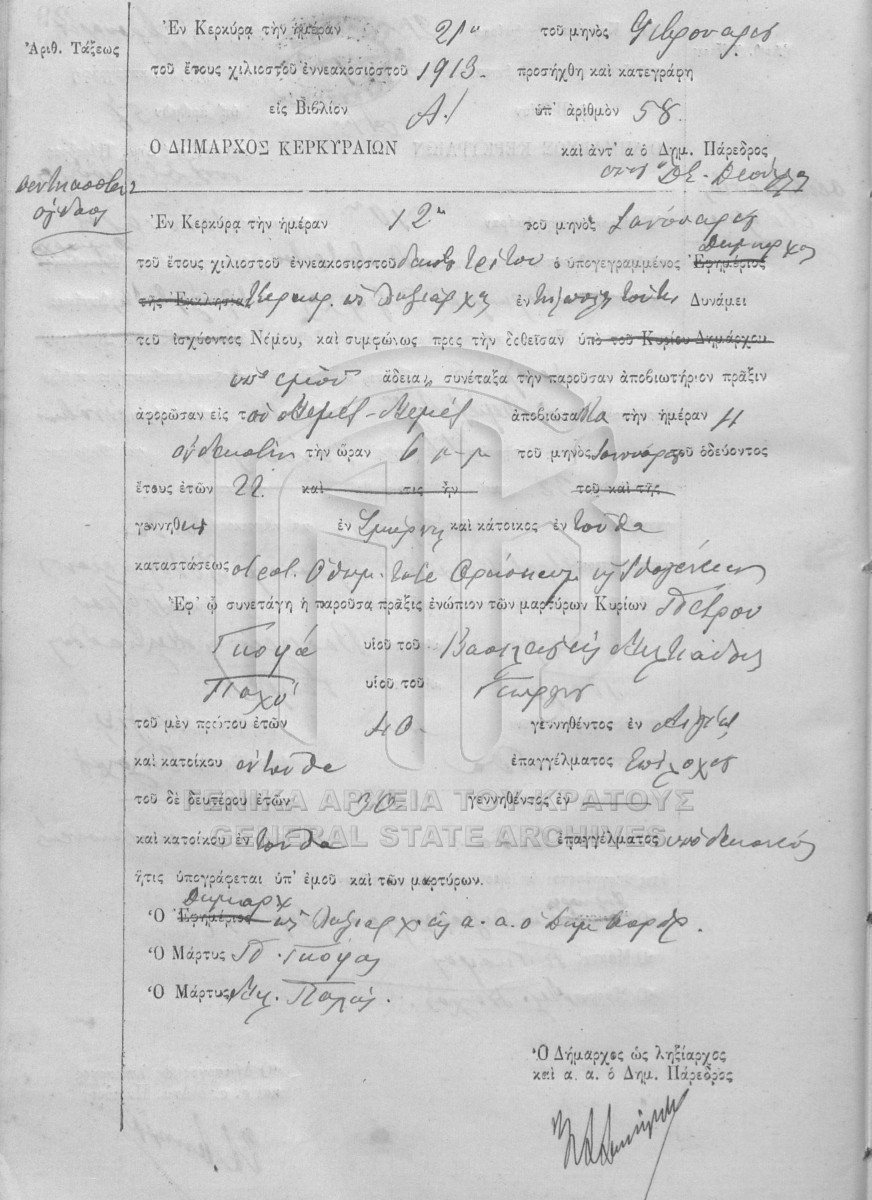 Ἐν Κερκύρᾳ τὴν ἡμέραν 21ην τοῦ μηνὸς Φεβρουαρίου
Ἀριθ. Τάξεως
τοῦ ἔτους χιλιοστοῦ ἐννεακοσιοστοῦ 1913. προσήχθη καὶ κατεγράφη
εἰς Βιβλίον Α! ὑπ' ἀριθμὸν 58.
Ο ΔΗΜΑΡΧΟΣ ΚΕΡΚΥΡΑΙΩΝ καὶ ἀντ' α ὁ Δημ. Πάρεδρος
Πεντηκοστὴ
ὀγδόη
Ἐν Κερκύρᾳ τὴν ἡμέραν 12ην τοῦ μηνὸς Ἰανουαρίου
Δήμαρχος
τοῦ ἔτους χιλιοστοῦ ἐννεακοσιοστοῦ δεκάτου τρίτου ὁ ὑπογεγραμμένος Ἐφημέριος
τῆς Ἐκκλησίας Κερκυρ. ὡς Ληξίαρχος ἐν τῇ πόλει ταύτῃ Δυνάμει
τοῦ ἰσχύοντος Νόμου, καὶ συμφώνως προς τὴν δεθεῖσαν ὑπὸ τοῦ Κυρίου Δημάρχου
ὑπ' ἐμοῦ ἄδειαν, συνέταξα τὴν παροῦσαν ἀποβιωτήριον πρᾶξιν
ἀφορῶσαν εἰς τὸν Μεμέτ-Μεμέτ ἀποβιώσαντα τὴν ἡμέραν
τὴν ὥραν 6 μ-μ τοῦ μηνὸς Ἰανουαρίου τοῦ ὁδεύοντος
ἔτους ἐτῶν 22. καὶ τις ἦν τοῦ καὶ τῆς
γεννηθεὶς ἐν Σμύρνῃ καὶ κάτοικος ἐν ταῦθα
καταστάσεως στρατ. Ὀθωμ. τότε
Ἐφ' ᾧ συνετάγη ἡ παροῦσα πρᾶξις ἐνώπιον τῶν μαρτύρων Κυρίων Πέτρου
Γκοφᾶ υἱοῦ τοῦ Βασιλείου καὶ Μιλτιάδου
υἱοῦ τοῦ Γεωργίου
τοῦ μὲν πρώτου ἐτῶν 40. γεννηθέντος ἐν
καὶ κατοίκου ἐνταῦθα ἐπαγγέλματος Ἐπίλοχος
τοῦ δὲ δευτέρου ἐτῶν 30 γεννηθέντος ἐν
ΓΕΝΙΚΑ ΑΡΧΕΙΑ ΤΟΥ ΚΡΑΤΟΥΣ
GENERAL STATE ARCHIVES
καὶ κατοίκου ἐν ταῦθα ἐπαγγέλματος ὑποδεκανεύς
ἥτις ὑπογράφεται ὑπ' ἐμοῦ καὶ τῶν μαρτύρων.
Δήμαρχ
Ὁ Ἐφημέριος ὡς Ληξίαρχος α. α. ὁ Δημ Παρεδρ.
Ὁ Μάρτυς Π. Γκοφας
Ὁ Μάρτυς Μιλ.
Ὁ Δήμαρχος ὡς ληξίαρχος
καὶ α. α. ὁ Δημ. Πάρεδρος